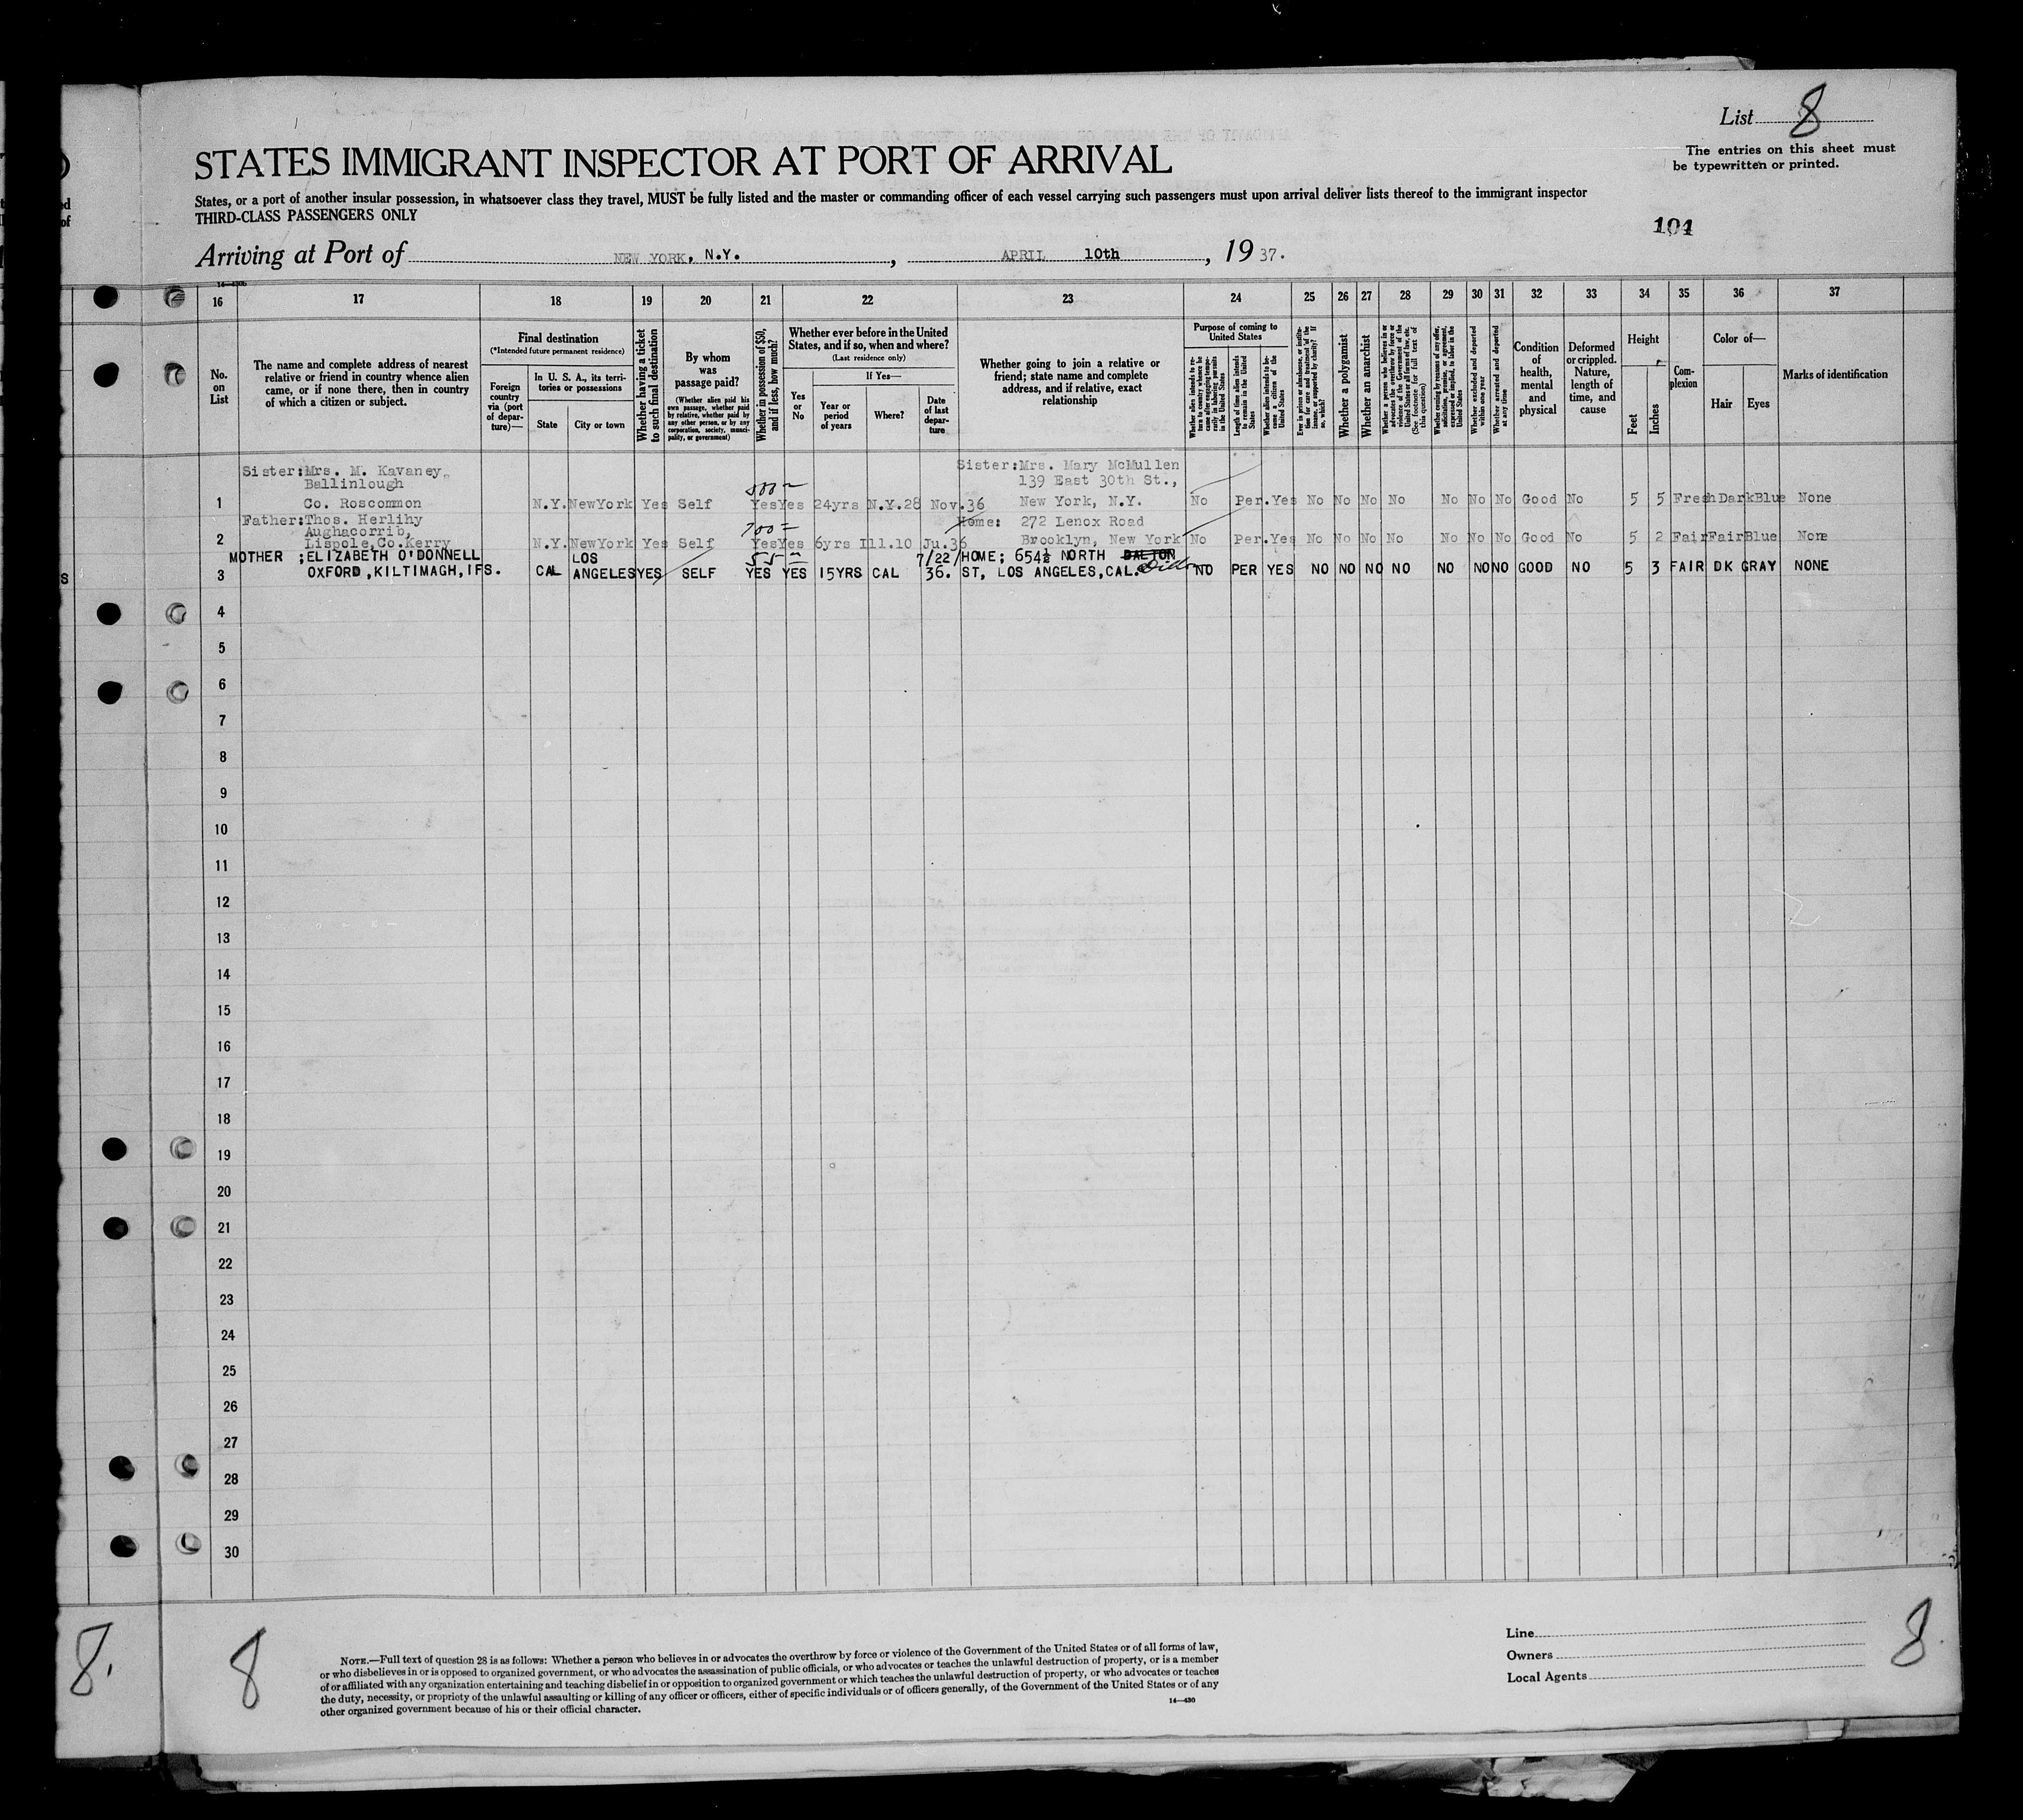 List 8
The entries on this sheet must
be typewritten or printed.
STATES IMMIGRANT INSPECTOR AT PORT OF ARRIVAL
States, or a port of another insular possession, in whatsoever class they travel, MUST be fully listed and the master or commanding officer of each vessel carrying such passengers must upon arrival deliver lists thereof to the immigrant inspector
THIRD-CLASS PASSENGERS ONLY
104
Arriving at Port of NEW YORK, N.Y., APRIL 10th, 1937.
16 17 18 19 20 21 22 23 24 25 26 27 28 29 30 31 32 33 34 35 36 37
No. on List
The name and complete address of nearest
relative or friend in country whence alien
came, or if none there, then in country
of which a citizen or subject.
Final destination
(*Intended future permanent residence)
Foreign country via (port of departure)—
In U. S. A., its territories or possessions
State
City or town
Whether having a ticket to such final destination
By whom was passage paid?
(Whether alien paid his own passage, whether paid by relative, whether paid by any other person, or by any corporation, society, municipality, or government)
Whether in possession of $50, and if less, how much?
Whether ever before in the United
States, and if so, when and where?
(Last residence only)
Yes or No
If Yes—
Year or period of years
Where?
Date of last departure
Whether going to join a relative or
friend; state name and complete
address, and if relative, exact
relationship
Purpose of coming to United States
Whether alien intends to return to country whence he came after engaging temporarily in laboring pursuits in the United States
Length of time alien intends to remain in the United States
Whether alien intends to become a citizen of the United States
Ever in prison or almshouse, or institution for care and treatment of the insane, or supported by charity? If so, which?
Whether a polygamist
Whether an anarchist
Whether a person who believes in or advocates the overthrow by force or violence of the Government of the United States or all forms of law, etc. (See footnote for full text of this question)
Whether coming by reason of any offer, solicitation, promise, or agreement, expressed or implied, to labor in the United States
Whether excluded and deported within one year
Whether arrested and deported at any time
Condition of health, mental and physical
Deformed or crippled. Nature, length of time, and cause
Height
Feet
Inches
Complexion
Color of—
Hair
Eyes
Marks of identification
Sister:Mrs. M. Kavaney, Sister:Mrs. Mary McMullen
Ballinlough 500 139 East 30th St.,
1 Co. Roscommon N.Y. NewYork Yes Self Yes Yes 24yrs N.Y.28 Nov.36 New York, N.Y. No Per. Yes No No No No No No No Good No 5 5 Fresh Dark Blue None
Father:Thos. Herlihy 700 Home: 272 Lenox Road
Aughacorrib,
2 Lispole,Co.Kerry N.Y. NewYork Yes Self Yes Yes 6yrs Ill.10 Ju.36 Brooklyn, New York No Per. Yes No No No No No No No Good No 5 2 Fair Fair Blue None
MOTHER ;ELIZABETH O'DONNELL LOS 55 7/22/ HOME; 654½ NORTH DALTON
3 OXFORD,KILTIMAGH,IFS. CAL ANGELES YES SELF YES YES 15YRS CAL 36. ST, LOS ANGELES,CAL. Dillon NO PER YES NO NO NO NO NO NO NO GOOD NO 5 3 FAIR DK GRAY NONE
4
5
6
7
8
9
10
11
12
13
14
15
16
17
18
19
20
21
22
23
24
25
26
27
28
29
30
8.
8
NOTE.—Full text of question 28 is as follows: Whether a person who believes in or advocates the overthrow by force or violence of the Government of the United States or of all forms of law,
or who disbelieves in or is opposed to organized government, or who advocates the assassination of public officials, or who advocates or teaches the unlawful destruction of property, or is a member
of or affiliated with any organization entertaining and teaching disbelief in or opposition to organized government or which teaches the unlawful destruction of property, or who advocates or teaches
the duty, necessity, or propriety of the unlawful assaulting or killing of any officer or officers, either of specific individuals or of officers generally, of the Government of the United States or of any
other organized government because of his or their official character.
14—430
Line
Owners
Local Agents
8